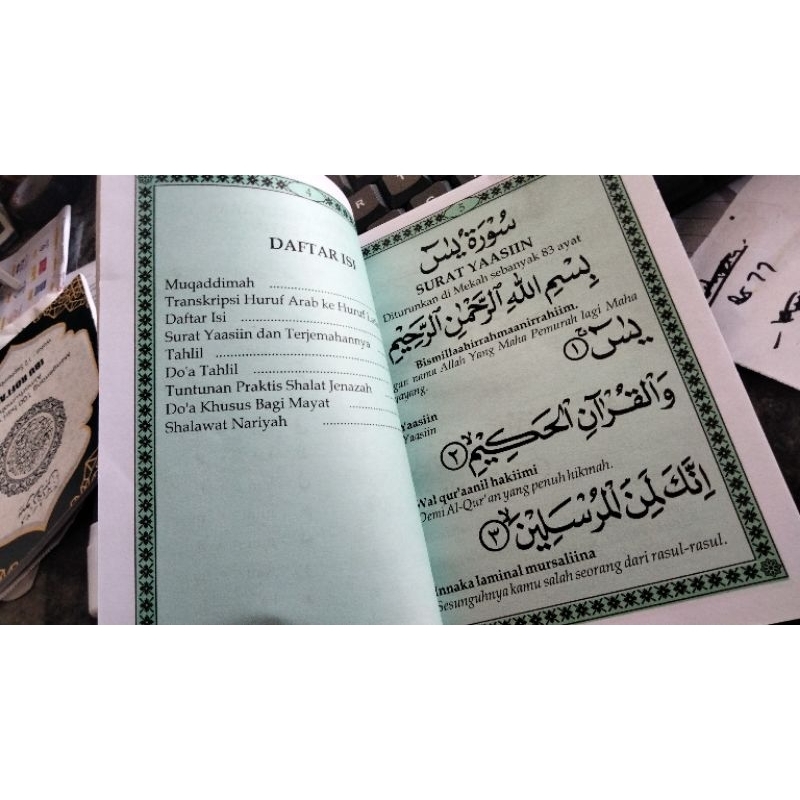 4
DAFTAR ISI
Muqaddimah
Transkripsi Huruf Arab ke Huruf
Daftar Isi
Surat Yaasiin dan Terjemahannya
Tahlil
Do'a Tahlil
Tuntunan Praktis Shalat Jenazah
Do'a Khusus Bagi Mayat
Shalawat Nariyah
5
سُورَة يٰسٓ
SURAT YAASIIN
Diturunkan di Mekah sebanyak 83 ayat
بِسْمِ اللهِ الرَّحْمٰنِ الرَّحِيْمِ
Bismillaahirrahmaanirrahiim.
nama Allah Yang Maha Pemurah lagi Maha
يٰسٓ ۚ ١
Yaasiin
Yaasiin
وَالْقُرْاٰنِ الْحَكِيْمِ ۙ ٢
Wal qur'aanil hakiimi
Demi Al-Qur'an yang penuh hikmah.
اِنَّكَ لَمِنَ الْمُرْسَلِيْنَ ۙ ٣
Innaka laminal mursaliina
Sesunguhnya kamu salah seorang dari rasul-rasul.